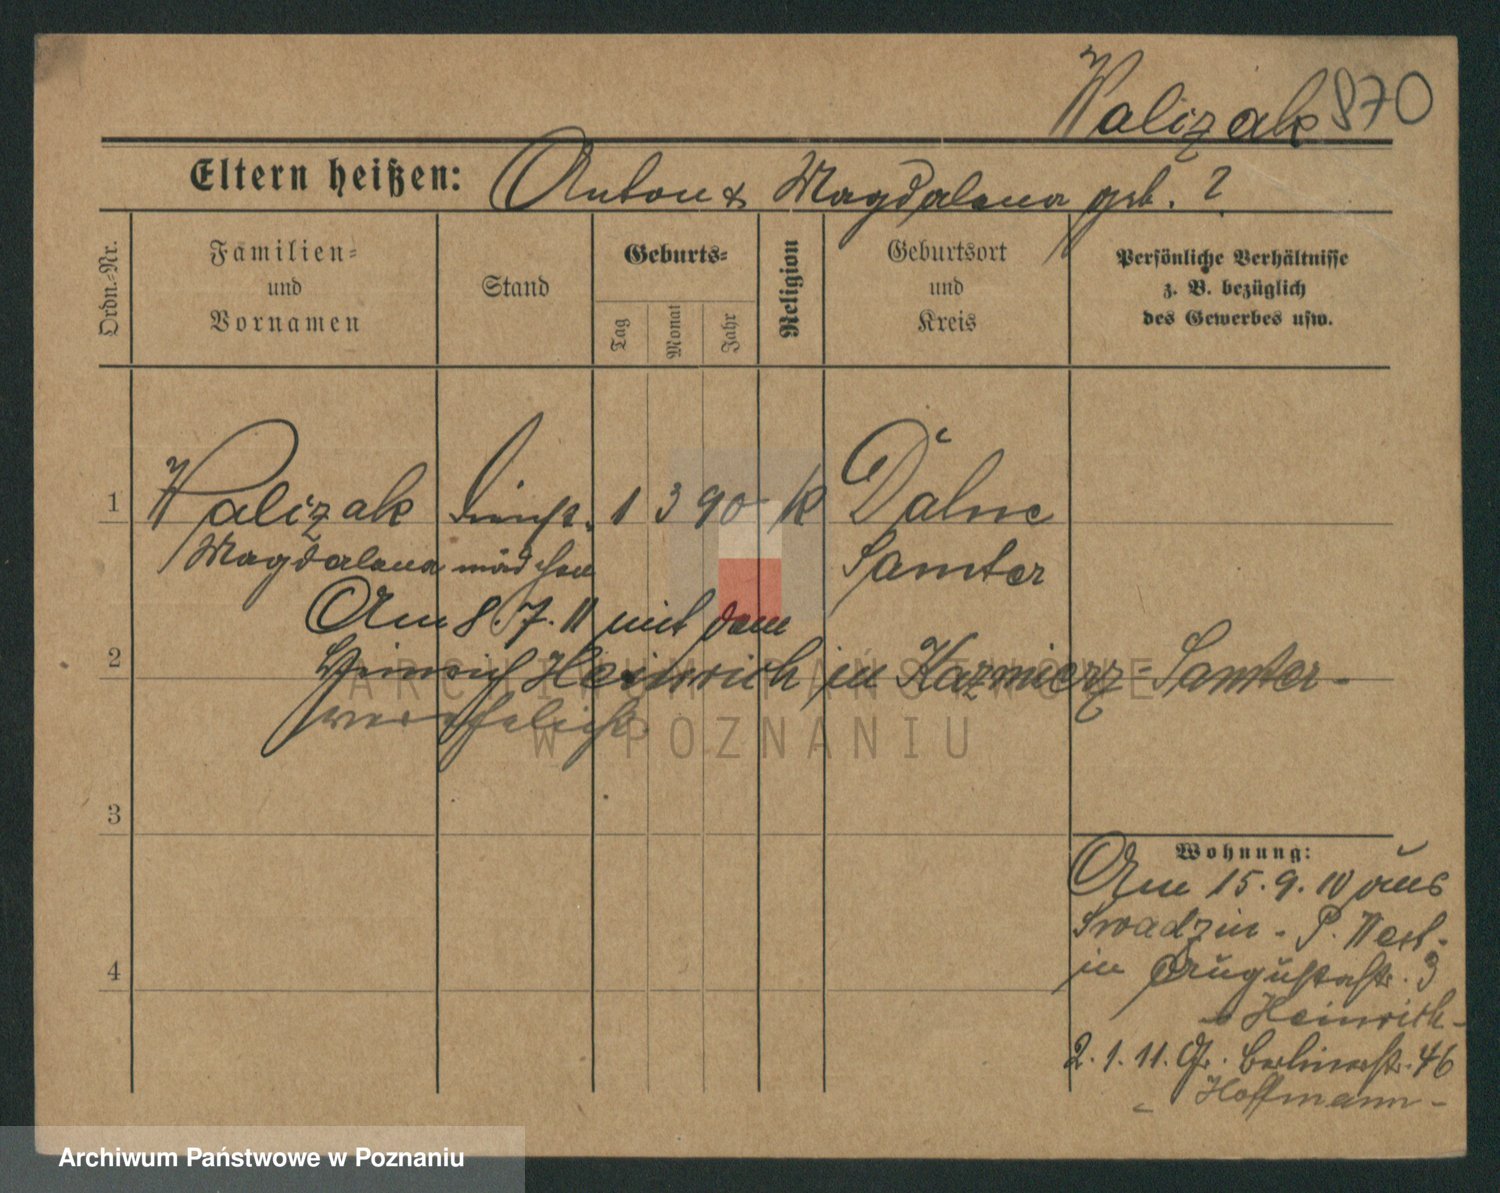 Walizak 870
Eltern heißen: Anton & Magdalena geb. ?
Ordn.-Nr.
Familien-
und
Vornamen
Stand
Geburts-
Tag
Monat
Jahr
Religion
Geburtsort
und
Kreis
Persönliche Verhältnisse
z. B. bezüglich
des Gewerbes usw.
1 Walizak Dienst- 1 3 90 K Dalne
Magdalena mädchen Samter
Am 8.7.11 mit dem
2 Heinrich in Kazmierz-Samter-
verehelicht
3
4
Wohnung:
Am 15.9.10 aus
Swadzin - P. West-
in Augustastr. 3
Heinrich-
2.1.11. Gr. Berlinerstr. 46
- Hoffmann -
ARCHIWUM PAŃSTWOWE
W POZNANIU
Archiwum Państwowe w Poznaniu